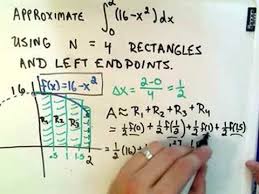 APPROXIMATE ∫₀² (16-x²)dx
USING N = 4 RECTANGLES
AND LEFT ENDPOINTS.
f(x)=16-x²
Δx = 2-0/4 = 1/2
16
R₁ R₂ R₃
A ≈ R₁ + R₂ + R₃ + R₄
= ½f(0) + ½f(½) + ½f(1) + ½f(1.5)
.5 1 1.5 2
= ½(16) +